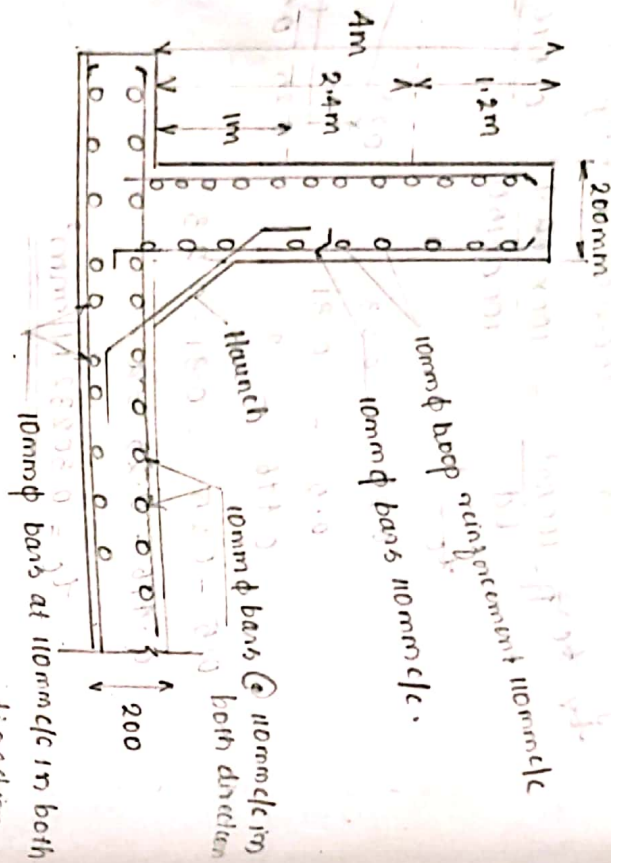 200mm
4m
1.2m
2.4m
1m
10mmϕ hoop reinforcement 110mmc/c
10mmϕ bars 110mmc/c.
Haunch
10mmϕ bars @ 110mmc/c in
both direction
200
10mmϕ bars at 110mmc/c in both